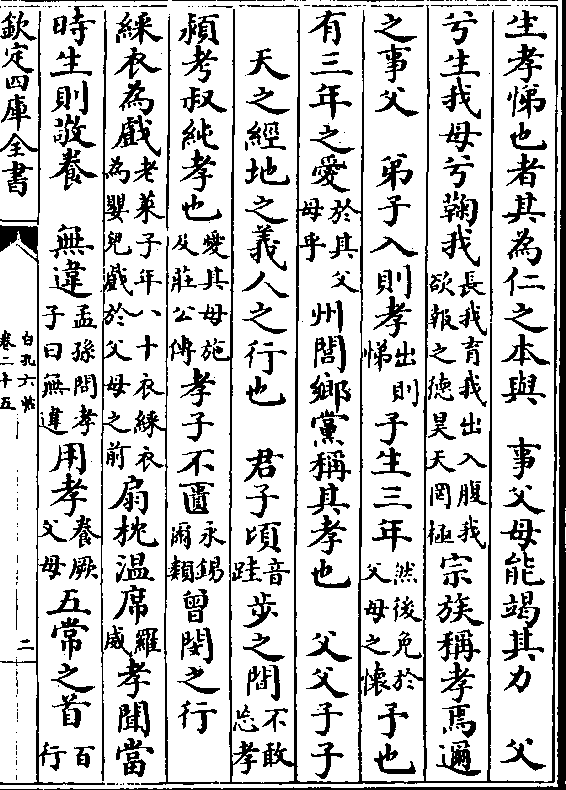 生孝悌也者其為仁之本與　事父母能竭其力　父
兮生我母兮鞠我長我育我出入腹我欲報之德昊天罔極宗族稱孝焉邇
之事父　弟子入則孝出則悌子生三年然後免於父母之懷子也
有三年之愛於其父母乎州閭鄉黨稱其孝也　父父子子
天之經地之義人之行也　君子頃音跬步之間不敢忘孝
潁考叔純孝也愛其母施及莊公傳孝子不匱永錫爾類曾閔之行
綵衣為戲老萊子年八十衣綵衣為嬰兒戲於父母之前扇枕溫席羅威孝聞當
時生則敬養　無違孟孫問孝子曰無違用孝養厥父母五常之首百行
欽定四庫全書
白孔六帖
卷二十五
二